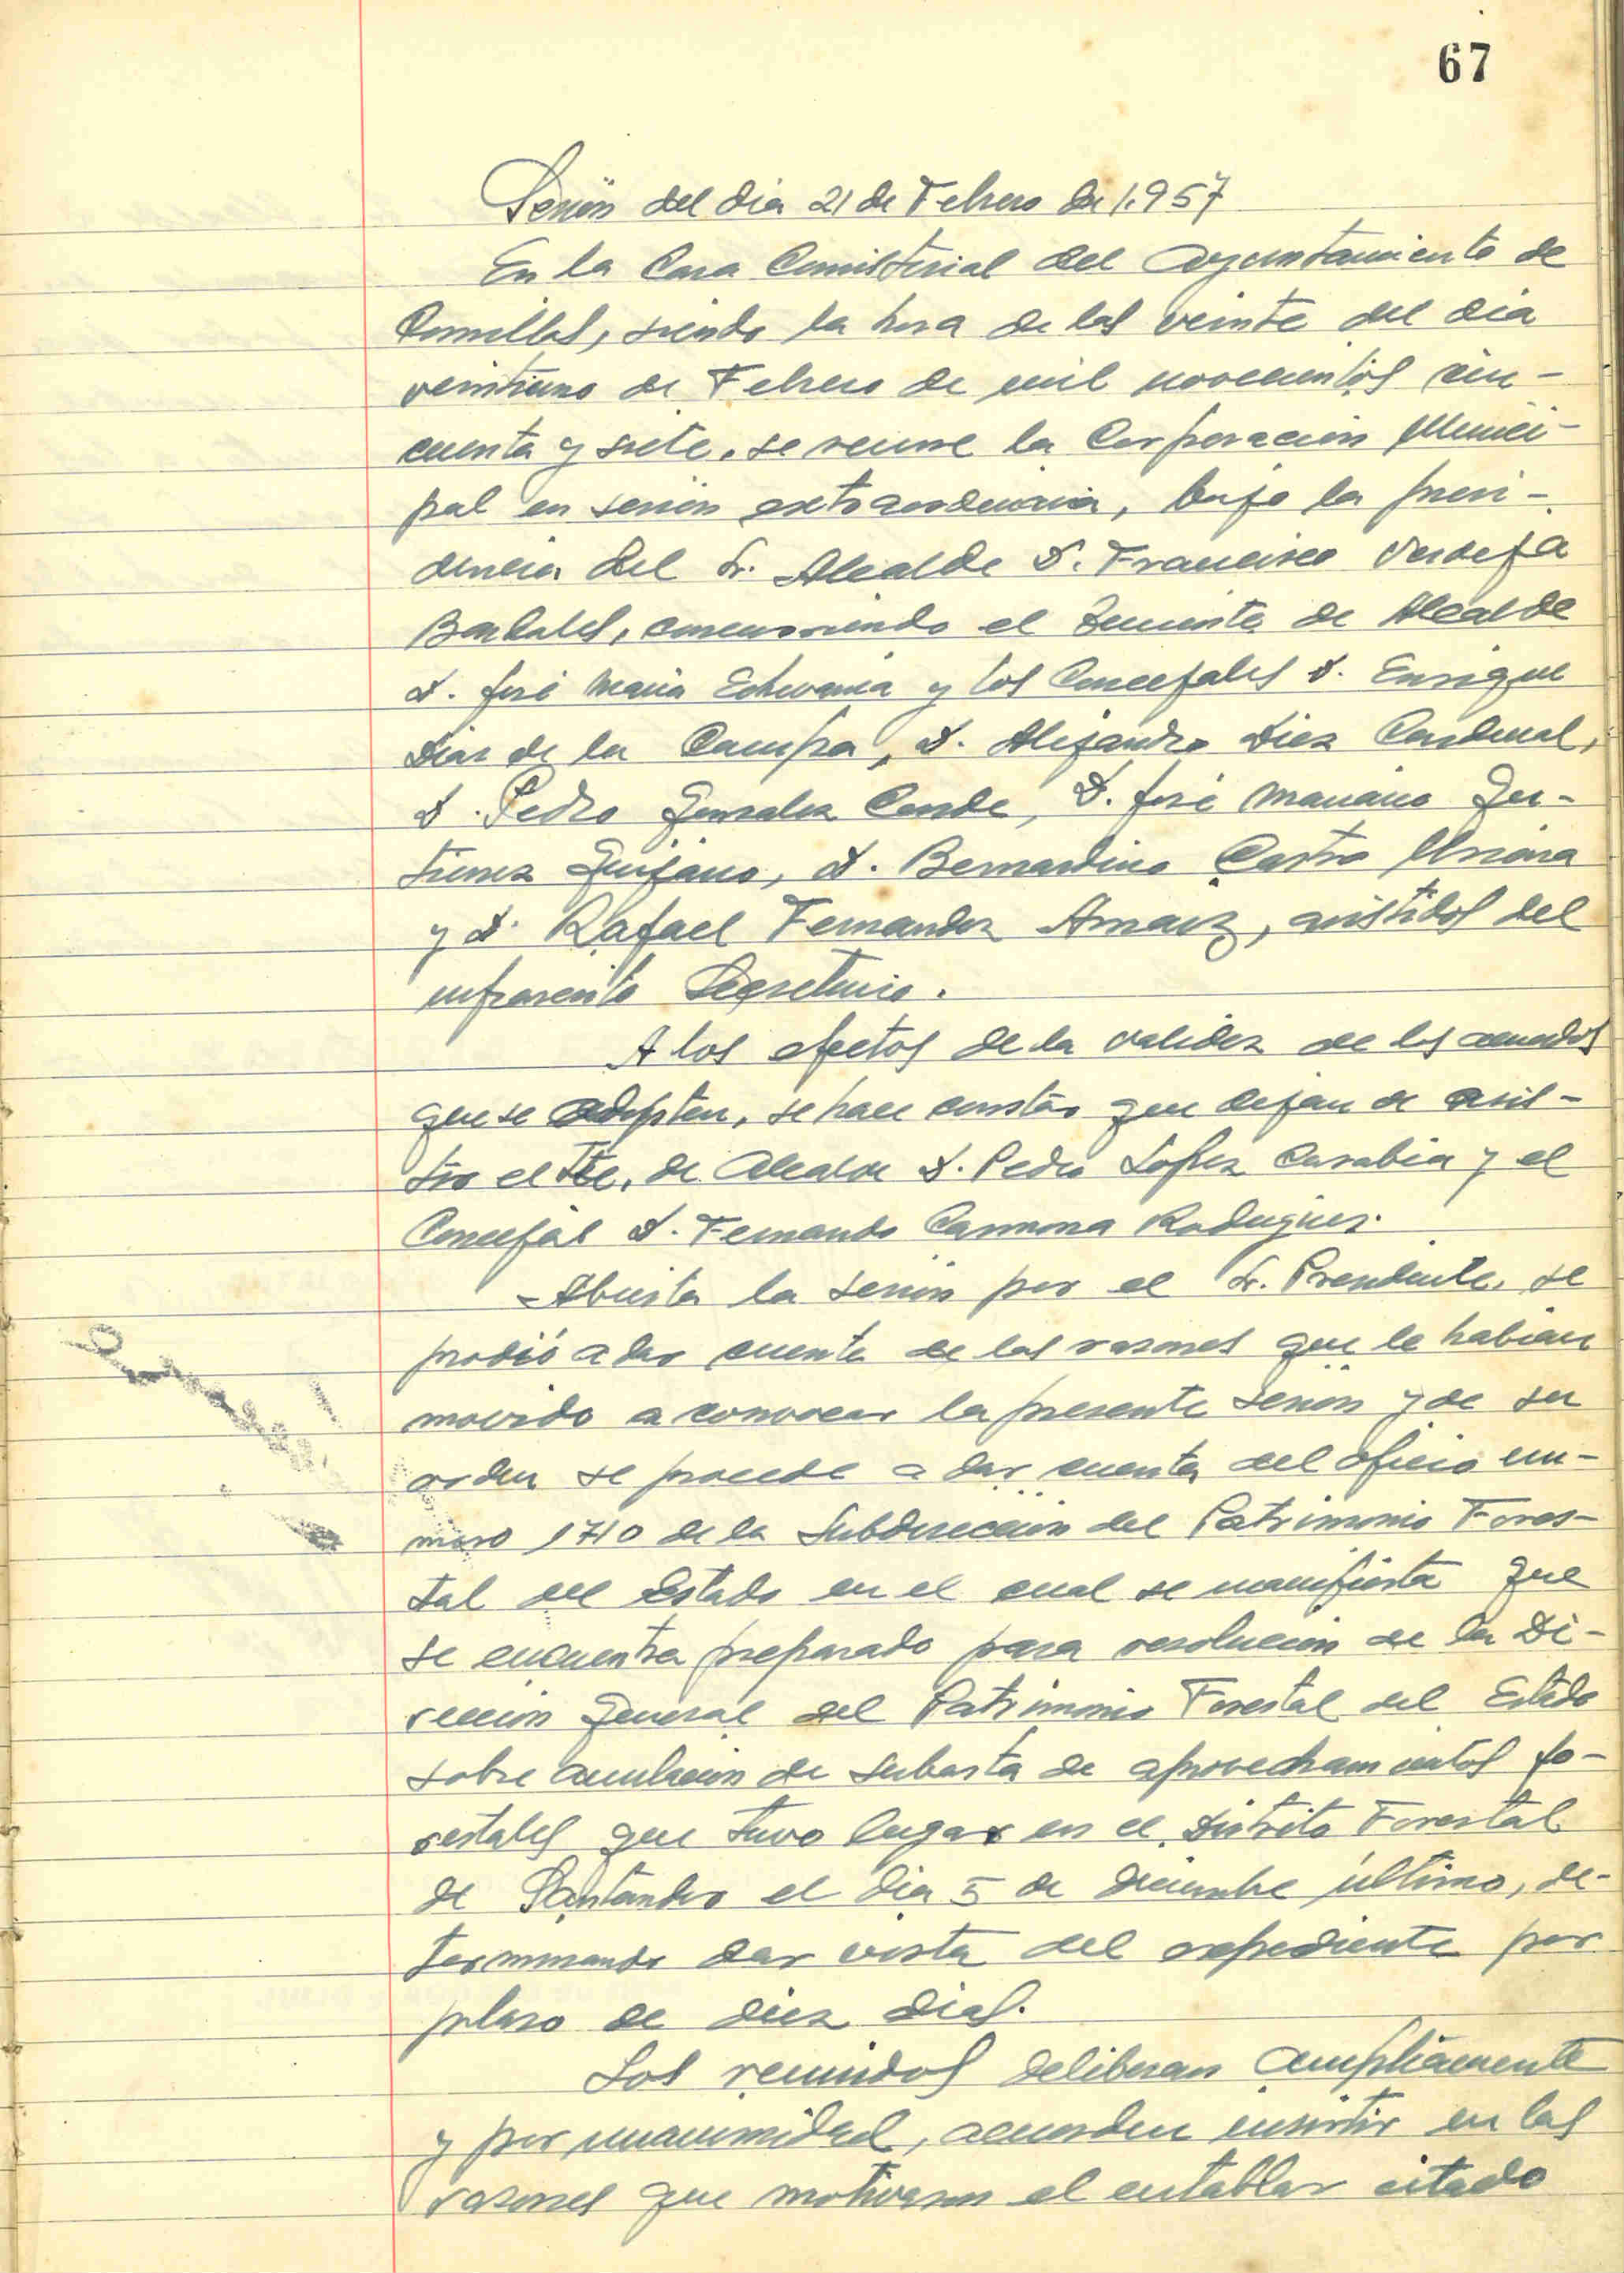 67
Sesión del dia 21 de Febrero de 1.957
En la Casa Consistorial del Ayuntamiento de
Comillas, siendo la hora de las veinte del dia
veintiuno de Febrero de mil novecientos cin-
cuenta y siete, se reune la Corporación Munici-
pal en sesión extraordinaria, bajo la presi-
dencia del Sr. Alcalde D. Francisco Verdeja
Bardales, concurriendo el Teniente de Alcalde
D. José Maria Echevarria y los Concejales D. Enrique
Diaz de la Campa, D. Alejandro Diez Cardenal,
D. Pedro Gonzalez Conde, D. José Mariano Gu-
tierrez Quijano, D. Bernardino Castro
y D. Rafael Fernandez Arnaiz, asistidos del
infrascrito Secretario.
A los efectos de la validez de los acuerdos
que se adopten, se hace constar que dejan de asis-
tir el Tte. de Alcalde D. Pedro López Carabia y el
Concejal D. Fernando Carmona Rodriguez.
Abierta la sesión por el Sr. Presidente, se
prodió a dar cuenta de las razones que le habian
movido a convocar la presente sesión y de su
orden se procede a dar cuenta del oficio nu-
mero 1710 de la Subdirección del Patrimonio Fores-
tal del Estado en el cual se manifiesta que
se encuentra preparado para resolución de la Di-
rección General del Patrimonio Forestal del Estado
sobre anulación de subasta de aprovechamientos fo-
restales que tuvo lugar en el Distrito Forestal
de Santander el dia 5 de diciembre último, de-
terminando dar vista del expediente por
plazo de diez dias.
Los reunidos deliberan ampliamente
y por unanimidad, acuerdan insistir en las
razones que motivaron el entablar citado